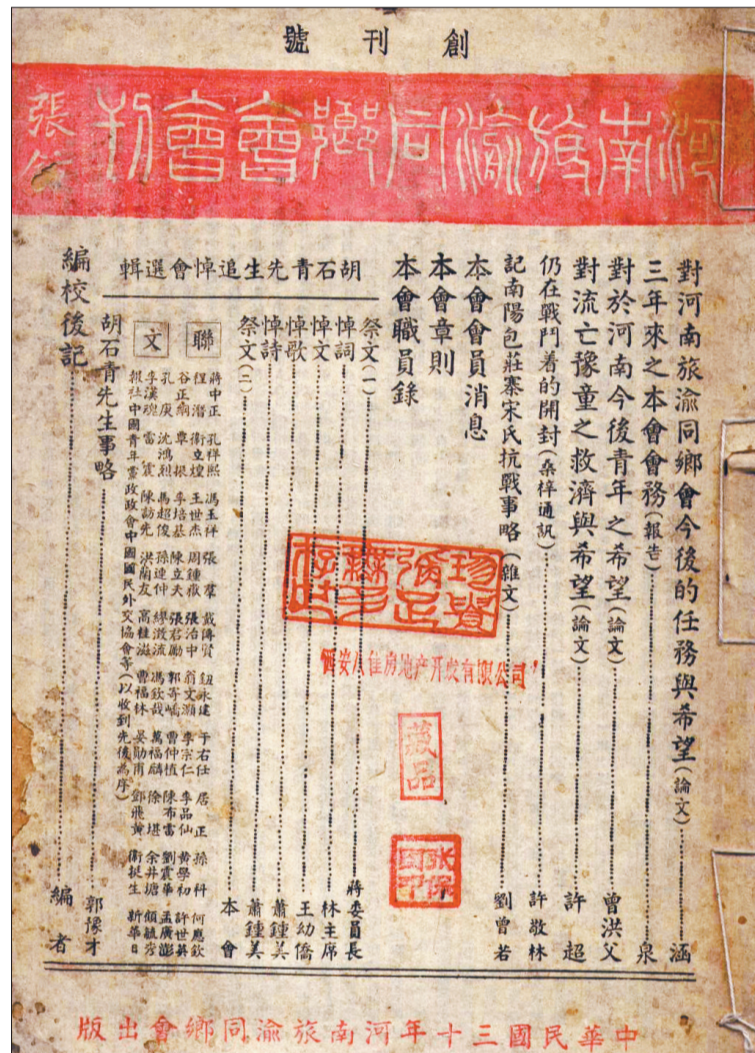 創刊號
河南旅渝同鄉會會刊
張
對河南旅渝同鄉會今後的任務與希望(論文)……涵
三年來之本會會務(報告)……泉
對於河南今後青年之希望(論文)……曾洪父
對流亡豫童之救濟與希望(論文)……許超
仍在戰鬥着的開封(桑梓通訊)……許敬林
記南陽包莊寨宋氏抗戰事略(雜文)……劉曾若
本會會員消息
本會章則
本會職員錄
胡石青先生追悼會選輯
祭文(一)……蔣委員長
悼詞……林主席
悼文……王幼僑
悼歌……蕭鍾美
悼詩……蕭鍾美
祭文(二)……本會
聯文
蔣中正 孔祥熙 馮玉祥 張羣 戴傳賢 鈕永建 于右任 居正 孫科 何應欽
程潛 衛立煌 王世杰 周鍾嶽 張治中 翁文灝 李宗仁 李品仙 黃學初 許世英
谷正綱 覃振 李培基 陳立夫 張君勱 郭寄嶠 曹仲植 陳布雷 劉震華 孟廣澎
孔庚 沈鴻烈 馬超俊 孫連仲 繆澂流 馮欽哉 萬福麟 徐堪 余井塘 顧毓琇
李漢魂 雷震 陳訪先 洪蘭友 高桂滋 曹福林 晏勛甫 鄧飛黃 衛挺生 新華日
報社中國青年黨政政會中國國民外交協會等(以收到先後為序)
胡石青先生事略……郭豫才
編校後記……編者
安八佳房地产开发有限公司
藏品
中華民國三十年河南旅渝同鄉會出版